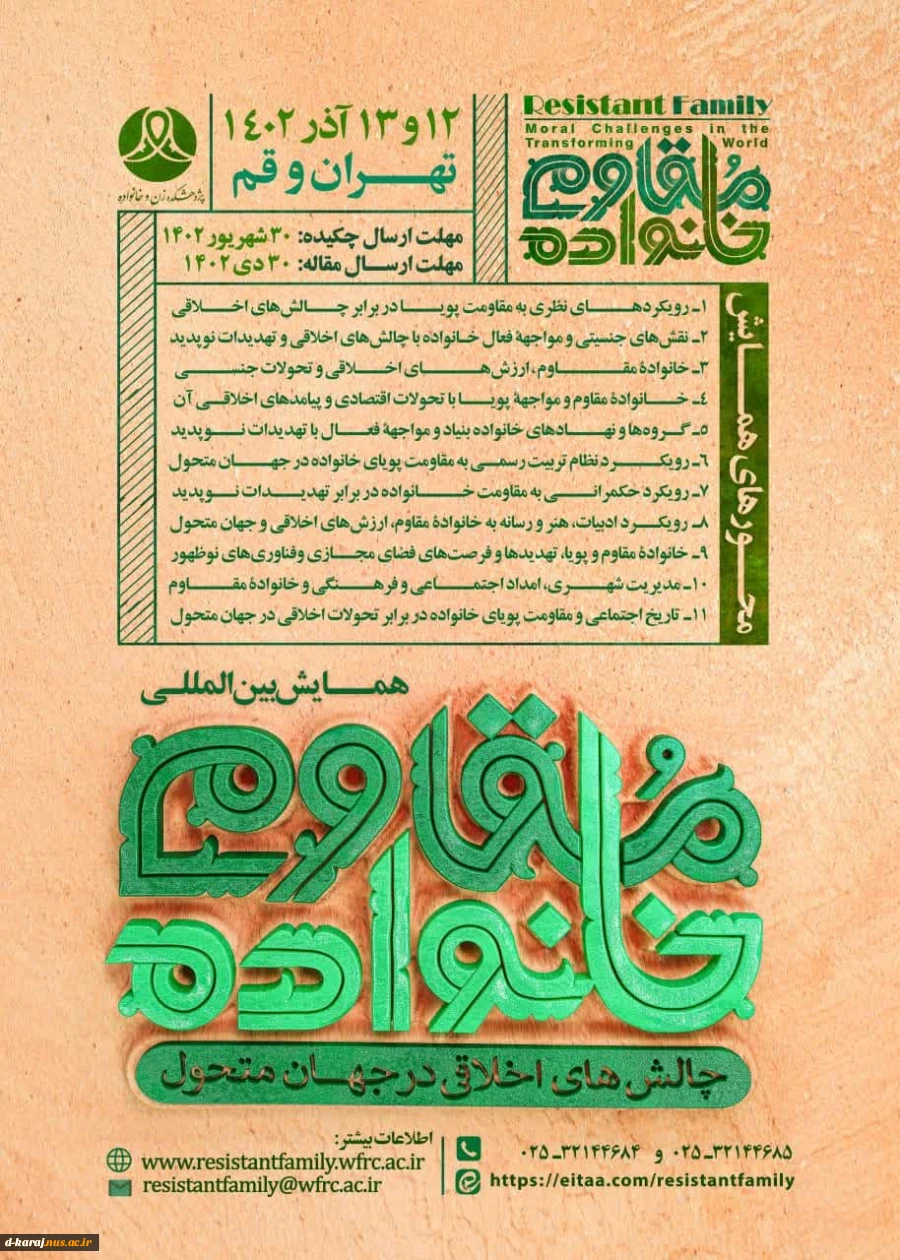 Resistant Family
Moral Challenges in the
Transforming World
خانواده مقاوم
۱۲ و ۱۳ آذر ۱۴۰۲
تهران و قم
پژوهشکده زن و خانواده
مهلت ارسال چکیده: ۳۰ شهریور ۱۴۰۲
مهلت ارسال مقاله: ۳۰ دی ۱۴۰۲
محورهای همایش
۱ـ رویکردهای نظری به مقاومت پویا در برابر چالش‌های اخلاقی
۲ـ نقش‌های جنسیتی و مواجهۀ فعال خانواده با چالش‌های اخلاقی و تهدیدات نوپدید
۳ـ خانوادۀ مقاوم، ارزش‌های اخلاقی و تحولات جنسی
۴ـ خانوادۀ مقاوم و مواجهۀ پویا با تحولات اقتصادی و پیامدهای اخلاقی آن
۵ـ گروه‌ها و نهادهای خانواده بنیاد و مواجهۀ فعال با تهدیدات نوپدید
۶ـ رویکرد نظام تربیت رسمی به مقاومت پویای خانواده در جهان متحول
۷ـ رویکرد حکمرانی به مقاومت خانواده در برابر تهدیدات نوپدید
۸ـ رویکرد ادبیات، هنر و رسانه به خانوادۀ مقاوم، ارزش‌های اخلاقی و جهان متحول
۹ـ خانوادۀ مقاوم و پویا، تهدیدها و فرصت‌های فضای مجازی وفناوری‌های نوظهور
۱۰ـ مدیریت شهری، امداد اجتماعی و فرهنگی و خانوادۀ مقاوم
۱۱ـ تاریخ اجتماعی و مقاومت پویای خانواده در برابر تحولات اخلاقی در جهان متحول
همایش بین‌المللی
خانواده مُقاوم
چالش‌های اخلاقی در جهان متحول
اطلاعات بیشتر:
www.resistantfamily.wfrc.ac.ir
resistantfamily@wfrc.ac.ir
۰۲۵-۳۲۱۴۴۶۸۵ و ۰۲۵-۳۲۱۴۴۶۸۴
https://eitaa.com/resistantfamily
d-karaj.nus.ac.ir